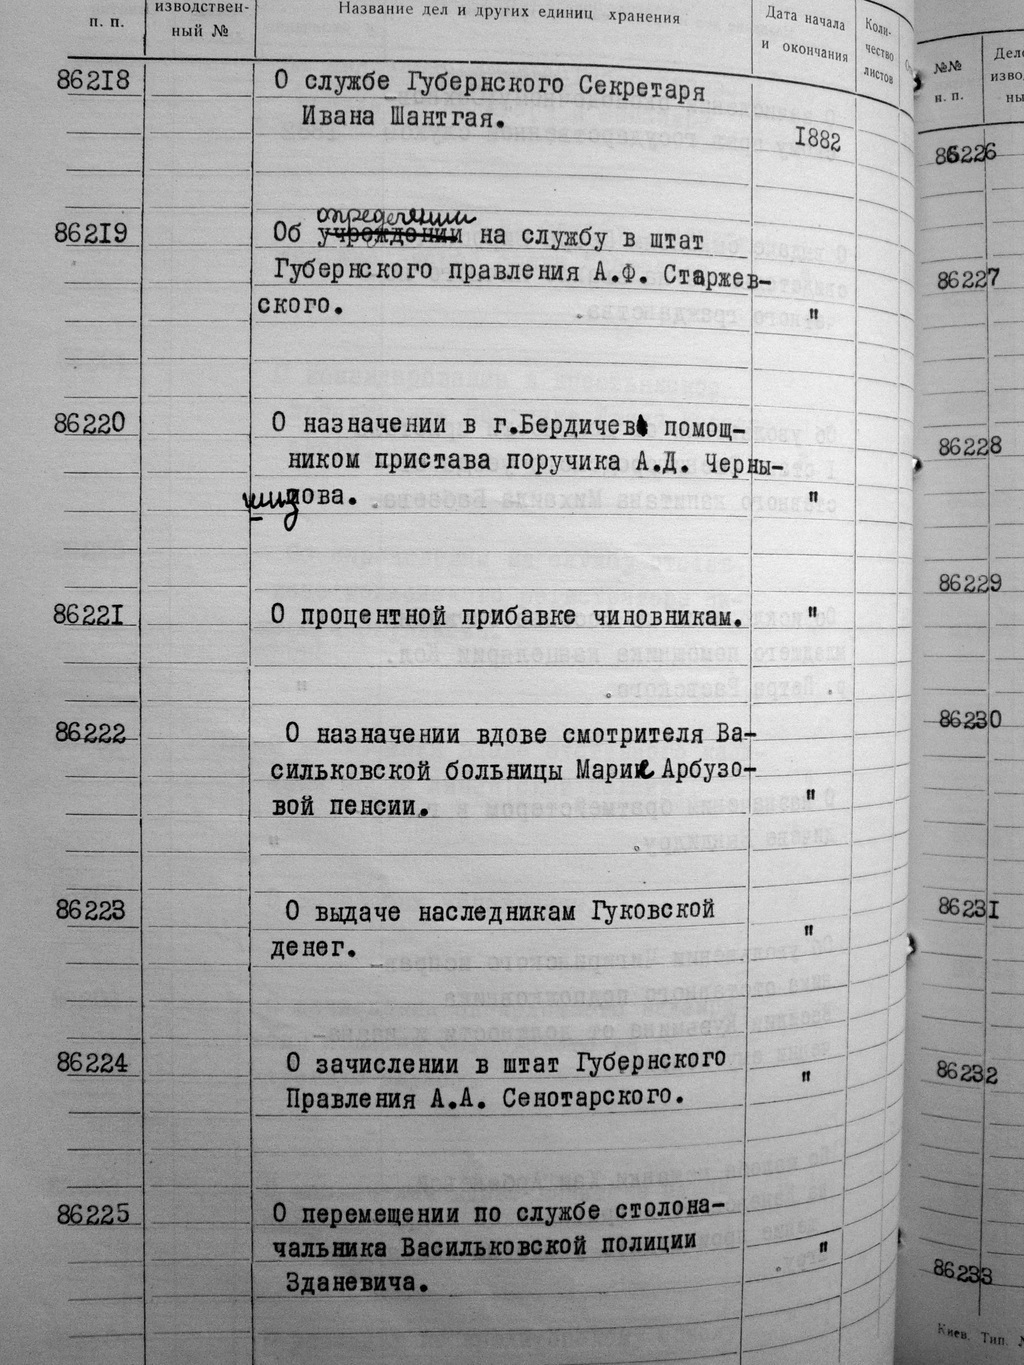 п. п.
изводствен-
ный №
Название дел и других единиц хранения
Дата начала
и окончания
Коли-
чество
листов
86218
О службе Губернского Секретаря
Ивана Шантгая.
1882
86219
определении
Об учреждении на службу в штат
Губернского правления А.Ф. Старжев-
ского.
"
86220
О назначении в г.Бердичев помощ-
ником пристава поручика А.Д. Черны-
"
86221
О процентной прибавке чиновникам.
"
86222
О назначении вдове смотрителя Ва-
сильковской больницы Марие Арбузо-
вой пенсии.
"
86223
О выдаче наследникам Гуковской
денег.
"
86224
О зачислении в штат Губернского
Правления А.А. Сенотарского.
"
86225
О перемещении по службе столона-
чальника Васильковской полиции
Зданевича.
"
№№
п. п.
86226
86227
86228
86229
86230
86231
86232
86233
Киев. Тип.